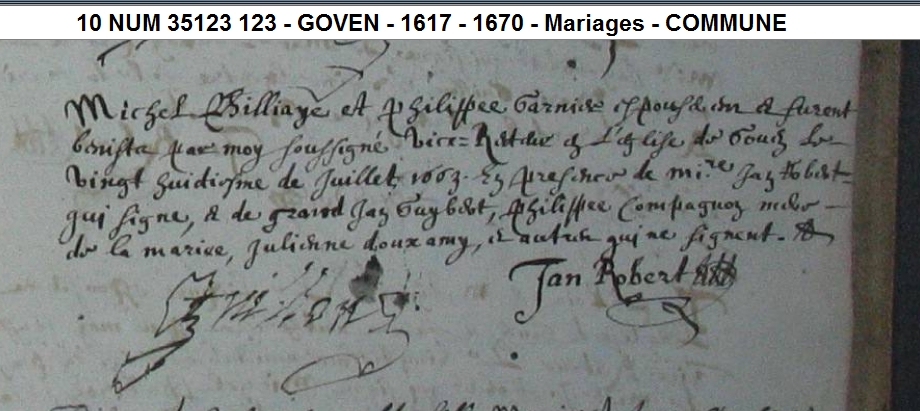 10 NUM 35123 123 - GOVEN - 1617 - 1670 - Mariages - COMMUNE
Michel et Philippee Garnier espouserent & furent
benists par moy soussigné vice-Recteur en L'eglise de Goven le
vingt huictiesme de Juillet 1663. En presence de mi.re Jan Robert
qui signe, & de grand Jan Guybert, Philippee Compagnon mere
de la mariee, Julienne douxamy, et autres qui ne signent.
Jan Robert